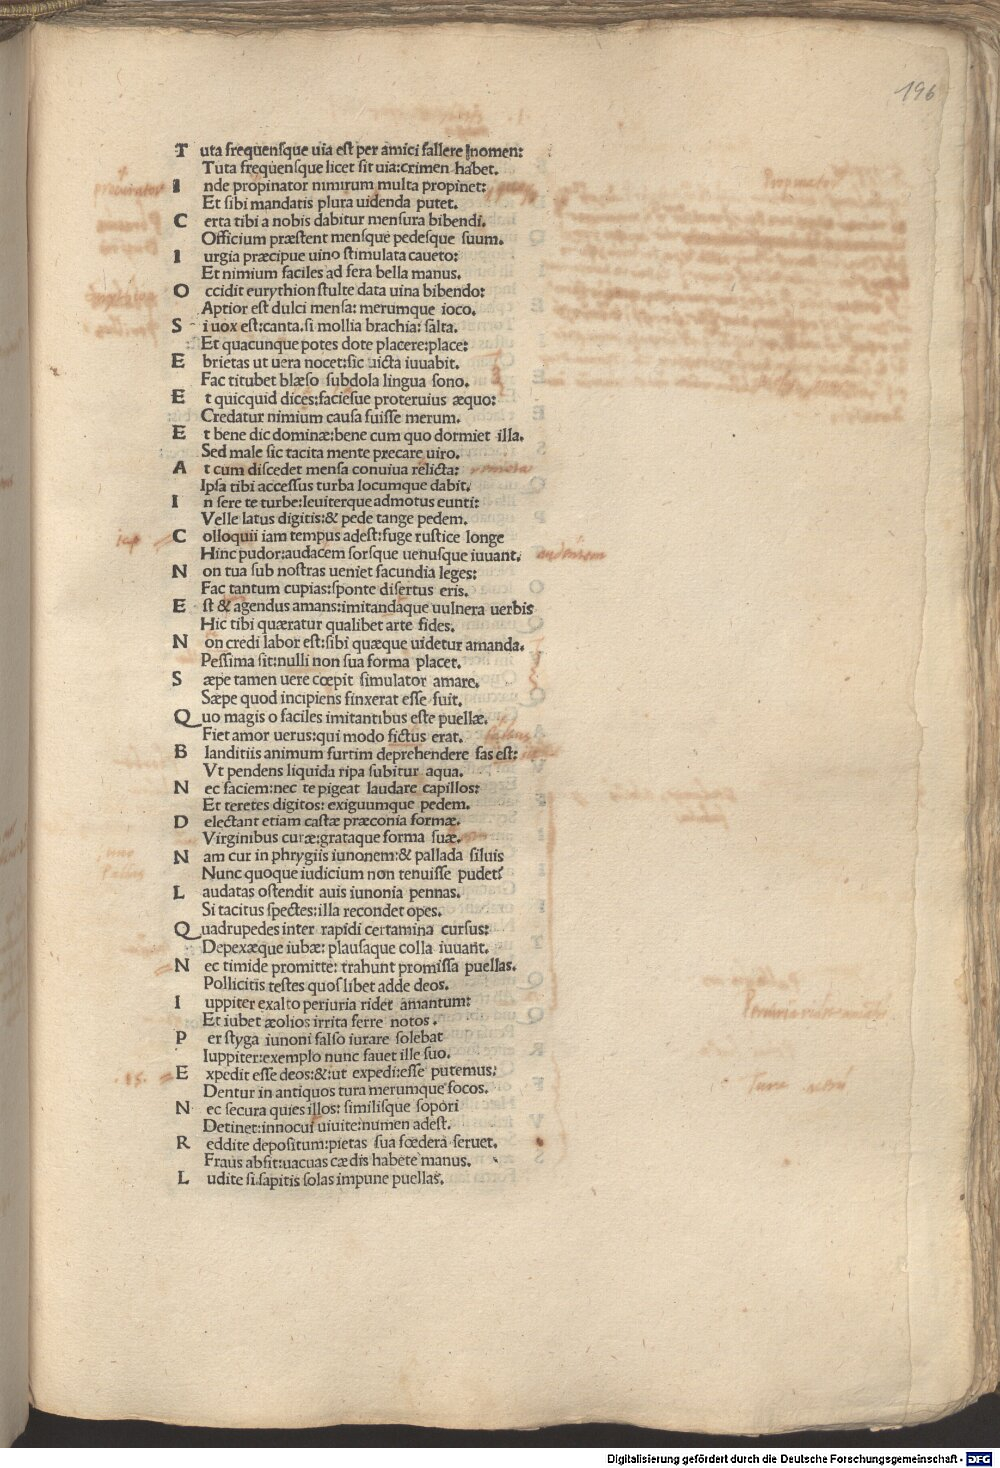 196
Tuta frequensque uia est per amici fallere nomen:
Tuta frequensque licet sit uia: crimen habet.
Inde propinator nimirum multa propinet:
Et sibi mandatis plura uidenda putet.
Certa tibi a nobis dabitur mensura bibendi.
Officium præstent mensque pedesque suum.
Iurgia præcipue uino stimulata caueto:
Et nimium faciles ad fera bella manus.
Occidit eurythion stulte data uina bibendo:
Aptior est dulci mensa: merumque ioco.
Si uox est: canta. si mollia brachia: salta.
Et quacunque potes dote placere: place:
Ebrietas ut uera nocet: sic uicta iuuabit.
Fac titubet blæso subdola lingua sono.
Et quicquid dices: faciesue proteruius æquo:
Credatur nimium causa fuisse merum.
Et bene dic dominæ: bene cum quo dormiet illa.
Sed male sic tacita mente precare uiro.
At cum discedet mensa conuiua relicta: remota
Ipsa tibi accessus turba locumque dabit.
In sere te turbe: leuiterque admotus eunti:
Velle latus digitis: & pede tange pedem.
Colloquii iam tempus adest: fuge rustice longe
Hinc pudor: audacem forsque uenusque iuuant. audentem
Non tua sub nostras ueniet facundia leges:
Fac tantum cupias: sponte disertus eris.
Est & agendus amans: imitandaque uulnera uerbis
Hic tibi quæratur qualibet arte fides.
Non credi labor est: sibi quæque uidetur amanda.
Pessima sit: nulli non sua forma placet.
Sæpe tamen uere cœpit simulator amare.
Sæpe quod incipiens finxerat esse fuit.
Quo magis o faciles imitantibus este puellæ.
Fiet amor uerus: qui modo fictus erat.
Blanditiis animum furtim deprehendere fas est:
Vt pendens liquida ripa subitur aqua.
Nec faciem: nec te pigeat laudare capillos:
Et teretes digitos: exiguumque pedem.
Delectant etiam castæ præconia formæ.
Virginibus curæ: grataque forma suæ.
Nam cur in phrygiis iunonem: & pallada siluis
Nunc quoque iudicium non tenuisse pudet?
Laudatas ostendit auis iunonia pennas.
Si tacitus spectes: illa recondet opes.
Quadrupedes inter rapidi certamina cursus:
Depexæque iubæ: plausaque colla iuuant.
Nec timide promitte: trahunt promissa puellas.
Pollicitis testes quoslibet adde deos.
Iuppiter ex alto periuria ridet amantum:
Et iubet æolios irrita ferre notos.
Per styga iunoni falso iurare solebat
Iuppiter: exemplo nunc fauet ille suo.
Expedit esse deos: & ut expedit: esse putemus:
Dentur in antiquos tura merumque focos.
Nec secura quies illos: similisque sopori
Detinet: innocui uiuite: numen adest.
Reddite depositum: pietas sua fœdera seruet.
Fraus absit: uacuas cædis habete manus.
Ludite si sapitis solas impune puellas.
Digitalisierung gefördert durch die Deutsche Forschungsgemeinschaft - DFG